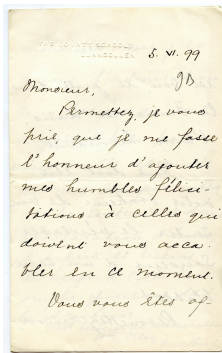 THE COUNTY SCHOOL
LLANGOLLEN
5. VI. 99
Monsieur,
Permettez, je vous
prie, que je me fasse
l'honneur d'ajouter
mes humbles félici-
tations à celles qui
doivent vous acca-
bler en ce moment.
Vous vous êtes af-